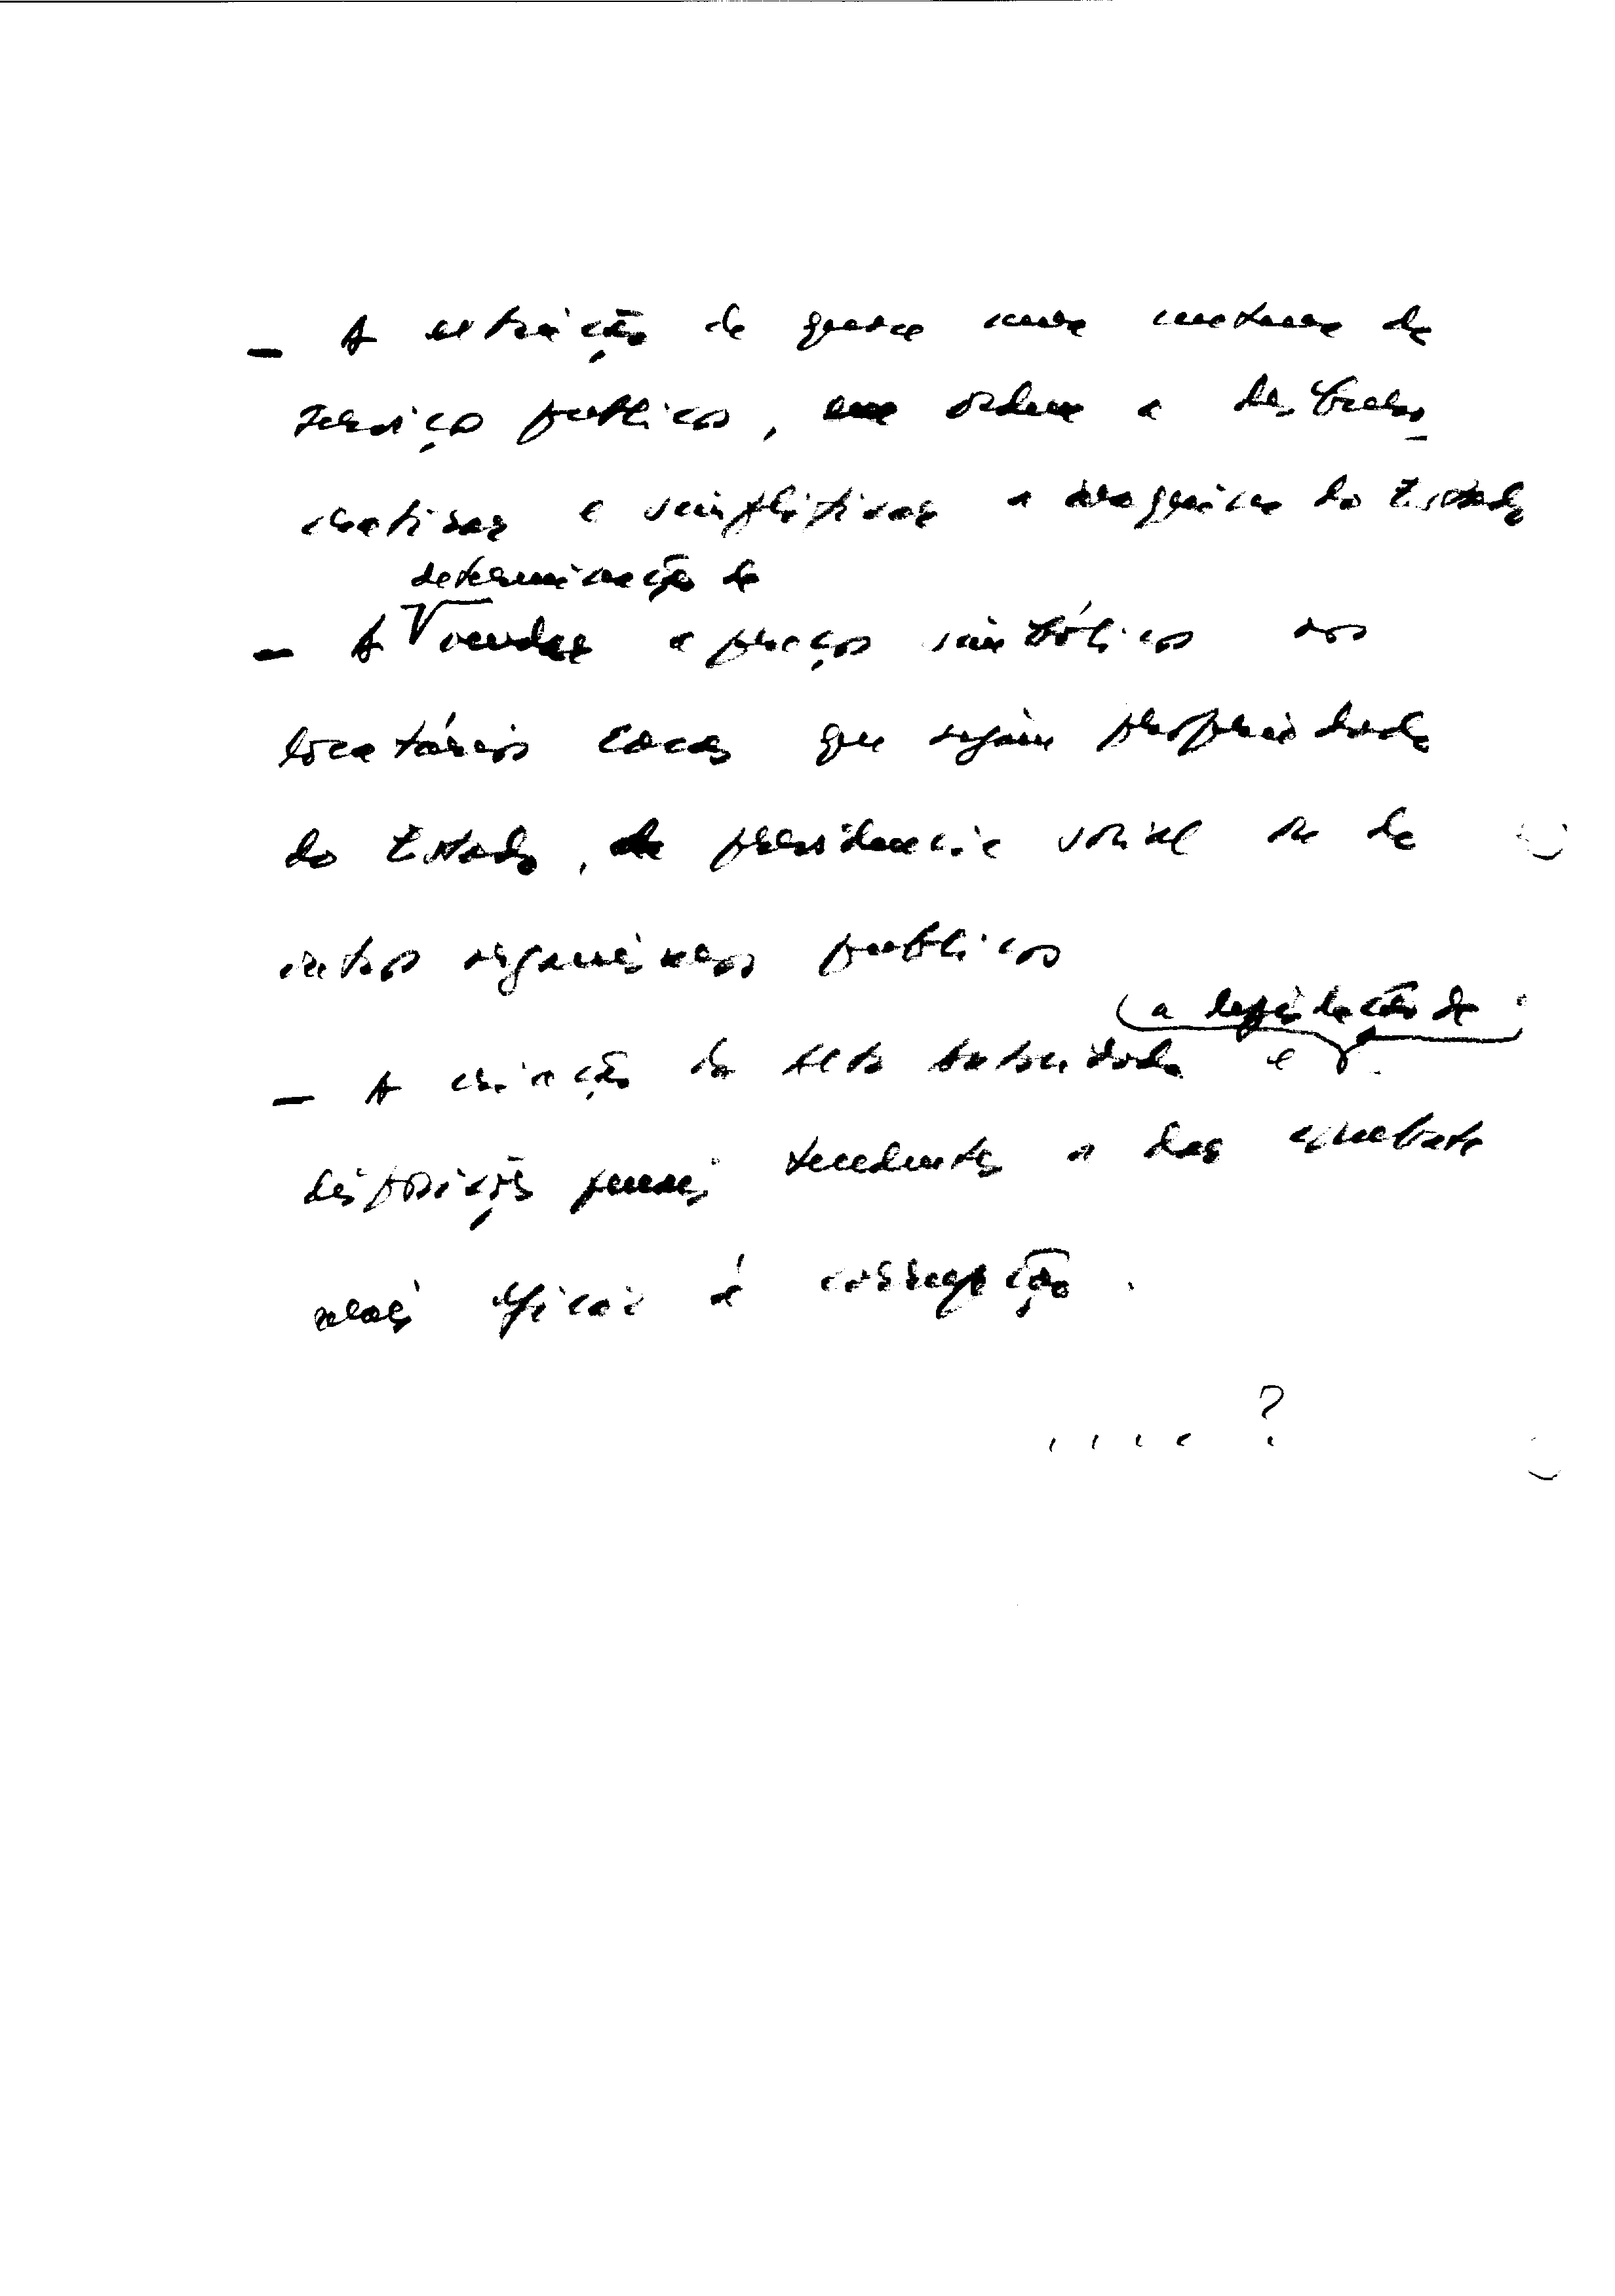 - A extinção de quase uma centena de
serviços públicos, em ordem a desburo-
cratizar e simplificar a máquina do Estado
determinação da
- A venda a preços simbólicos aos
locatários casas que sejam propriedade
do Estado, da previdência social ou de
outros organismos públicos
(a legislação de
- A criação da Alta Autoridade e
disposições penais tendentes a dar combate
mais eficaz à corrupção.
....?